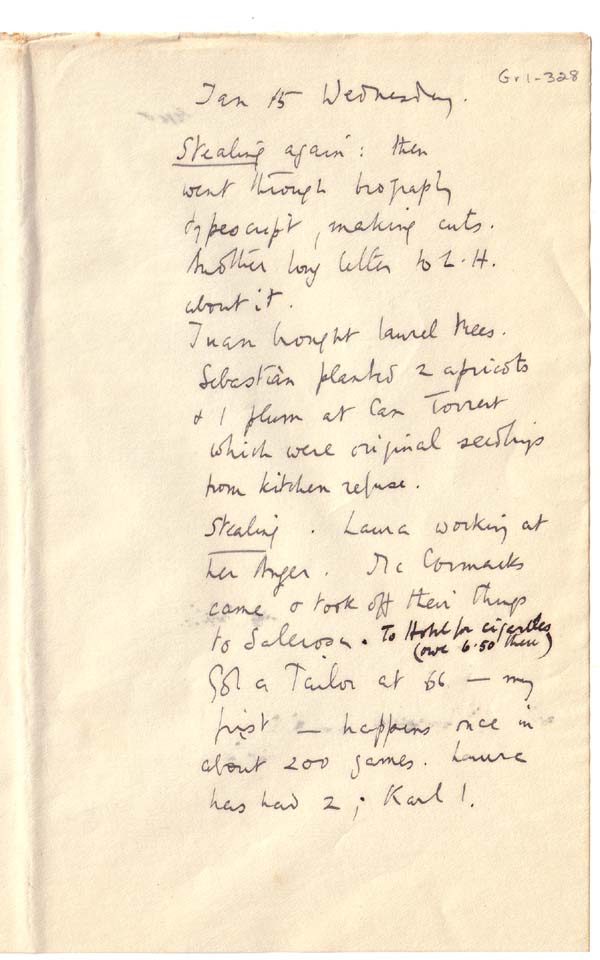 Gr1-328
Jan 15 Wednesday.
Stealing again: then
went through biography
typescript, making cuts.
Another long letter to L.H.
about it.
Juan brought laurel trees.
Sebastian planted 2 apricots
& 1 plum at Can Torrent
which were original seedlings
from kitchen refuse.
Stealing. Laura working at
her Anger. McCormacks
came & took off their things
to Salerosa. To Hotel for cigarettes
(owe 6.50 there)
Got a Tailor at 66 — my
first — happens once in
about 200 games. Laura
has had 2; Karl 1.